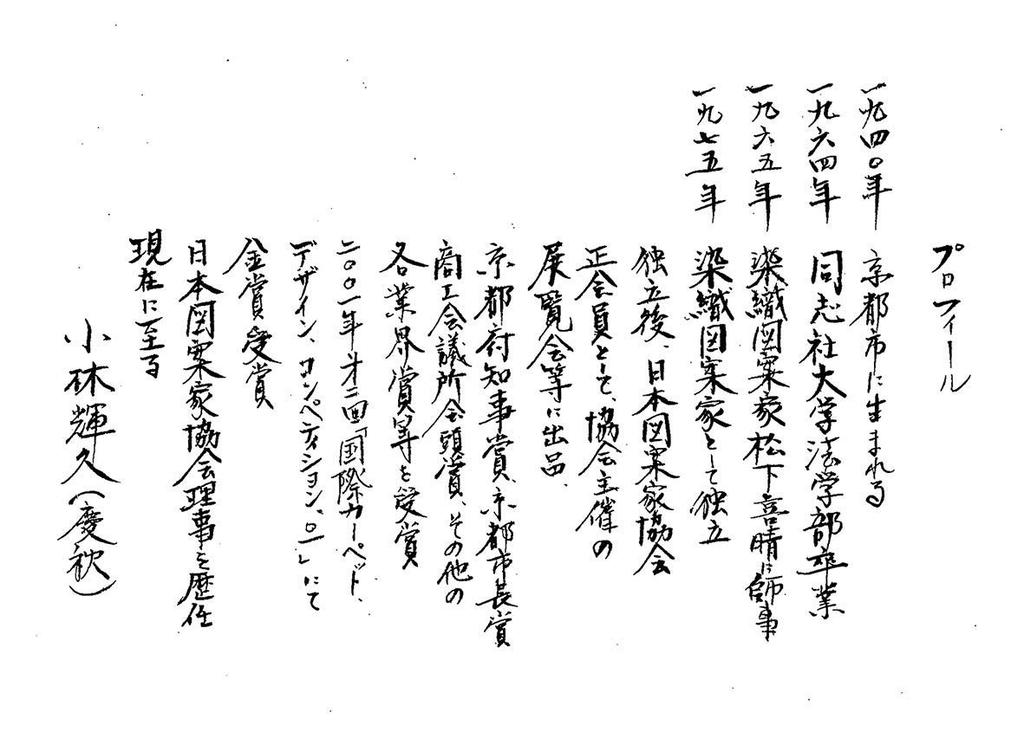 プロフィール
一九四〇年 京都市に生まれる
一九六四年 同志社大学法学部卒業
一九六五年 染織図案家松下喜晴に師事
一九七五年 染織図案家として独立
独立後、日本図案家協会
正会員として、協会主催の
展覧会等に出品、
京都府知事賞、京都市長賞
商工会議所会頭賞、その他の
各業界賞等を受賞
二〇〇一年才二回「国際カーペット、
デザイン、コンペティション、〇一」にて
金賞受賞
日本図案家協会理事を歴任
現在に至る
小林輝久(慶秋)